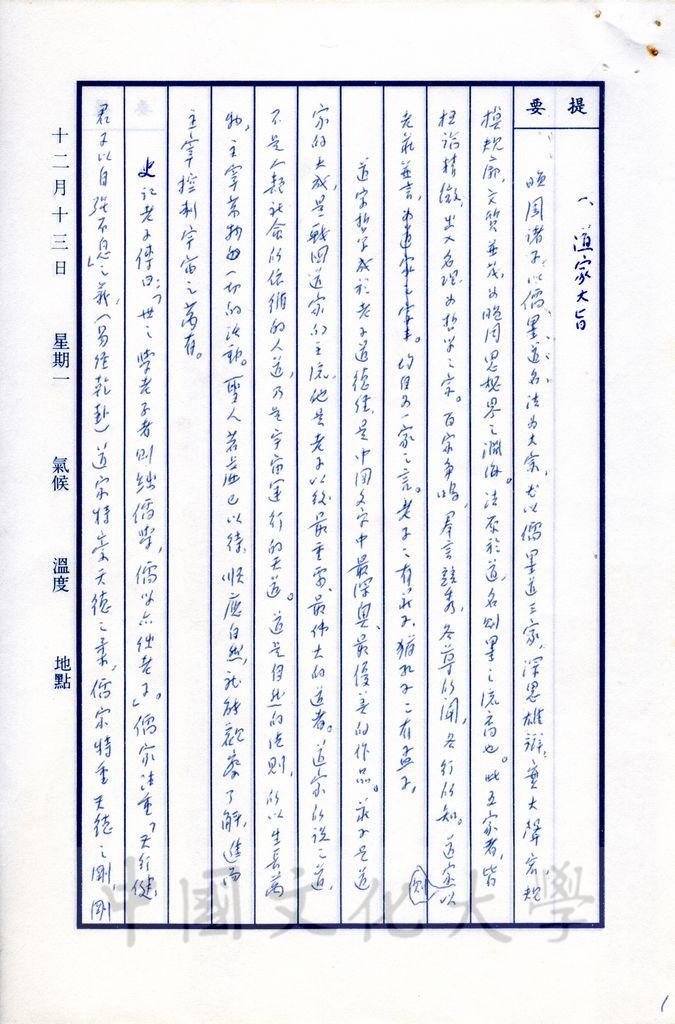 提要
一、道家大旨
晚周諸子，以儒墨道名法為大宗，尤以儒墨道三家，深思雄辯，實大聲宏規
模規廓，文質並茂，為晚周思想界之淵海。法原於道，名則墨之流裔也。此五家者，皆
極論精微，出入名理，為哲學之宗。百家爭鳴，羣言競秀，各尊所聞，各行所知。道家以
老莊並言，均自為一家之言。老子之有莊子，猶孔子之有孟子。
則
道家哲學成於老子道德經，是中國文字中最深奧、最優美的作品。莊子是道
家的大成，是戰國道家的主流，他是老子以後最重要、最偉大的道者。道家的說之道，
不是人類社會的依循的人道，乃是宇宙運行的天道。道是自然的法則，所以生長萬
物，主宰萬物的一切的活動。聖人若虛己以待，順應自然，就能觀察了解，進而
主宰控制宇宙之萬有。
史記老子傳曰：「世之學老子者則絀儒學，儒學亦絀老子。」儒家注重「天行健，
君子以自強不息」之義，（易經乾卦）道家特崇天德之柔，儒家特重天德之剛，剛
十二月十三日 星期一 氣候 溫度 地點
中國文化大學
1